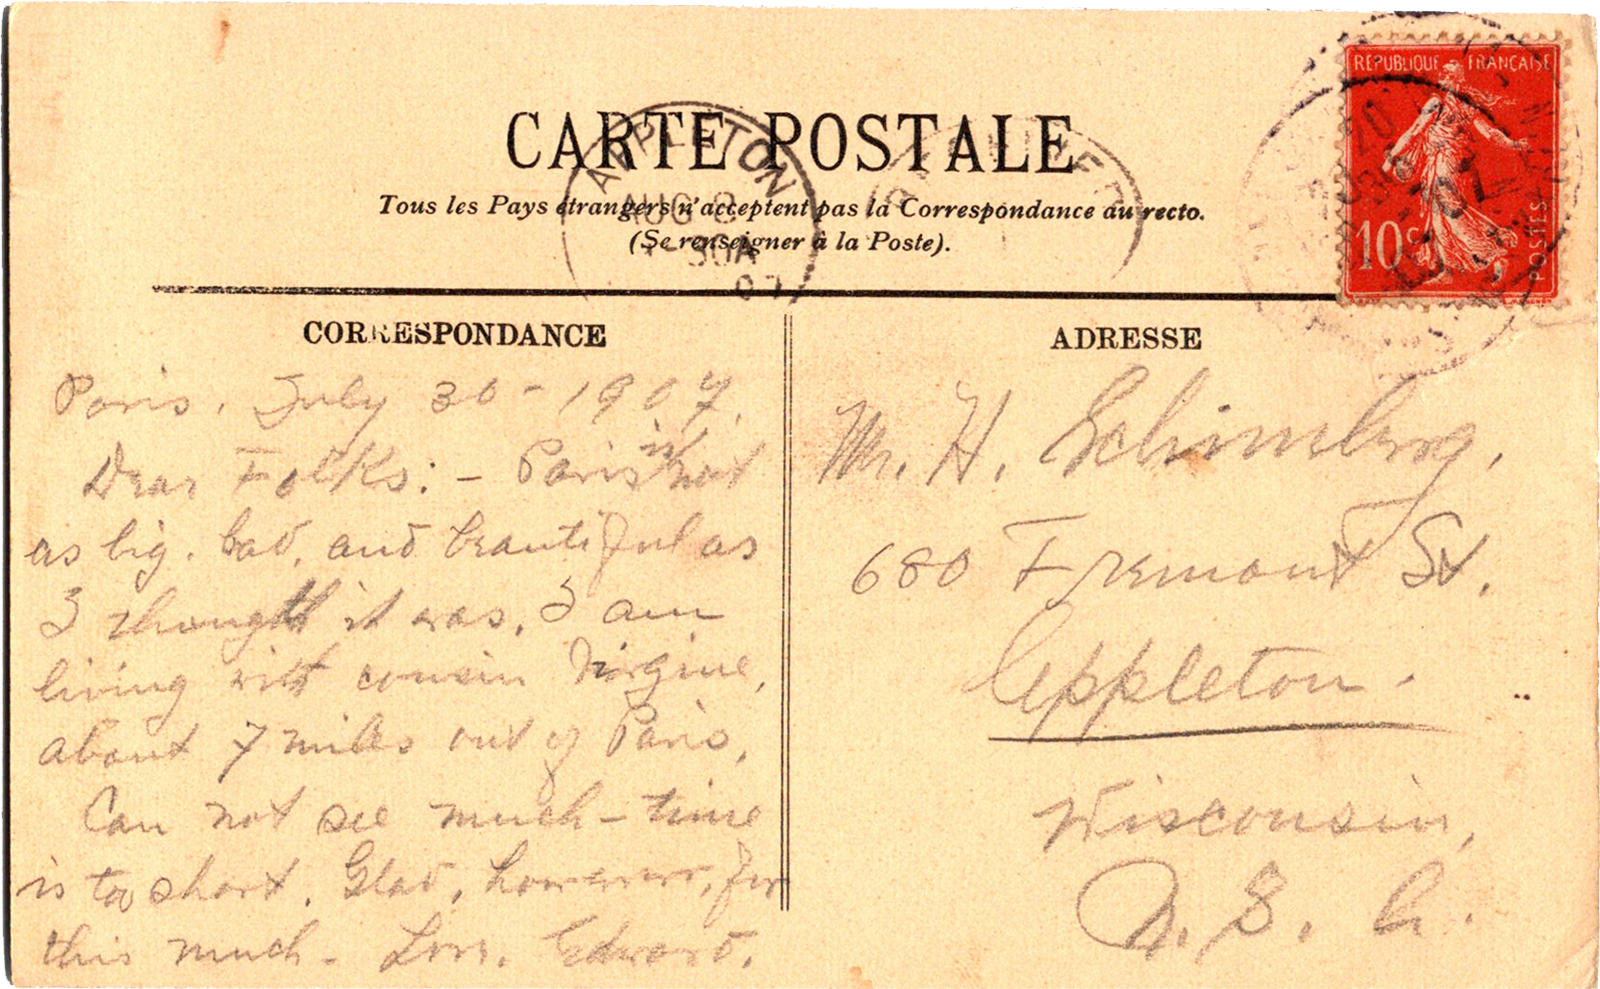 CARTE POSTALE
Tous les Pays étrangers n'acceptent pas la Correspondance au recto.
(Se renseigner à la Poste).
APPLETON
AUG 8
30A
07
REPUBLIQUE FRANÇAISE
10c
POSTES
CORRESPONDANCE
Paris, July 30 - 1907.
Dear Folks: - Paris is not
as big, bad, and beautiful as
I thought it was. I am
living with cousin Virginie,
about 7 miles out of Paris.
Can not see much - time
is too short. Glad, however, for
this much - Love. Edward.
ADRESSE
Mr. H. Schimberg,
680 Fremont St.
Appleton.
Wisconsin,
U. S. A.